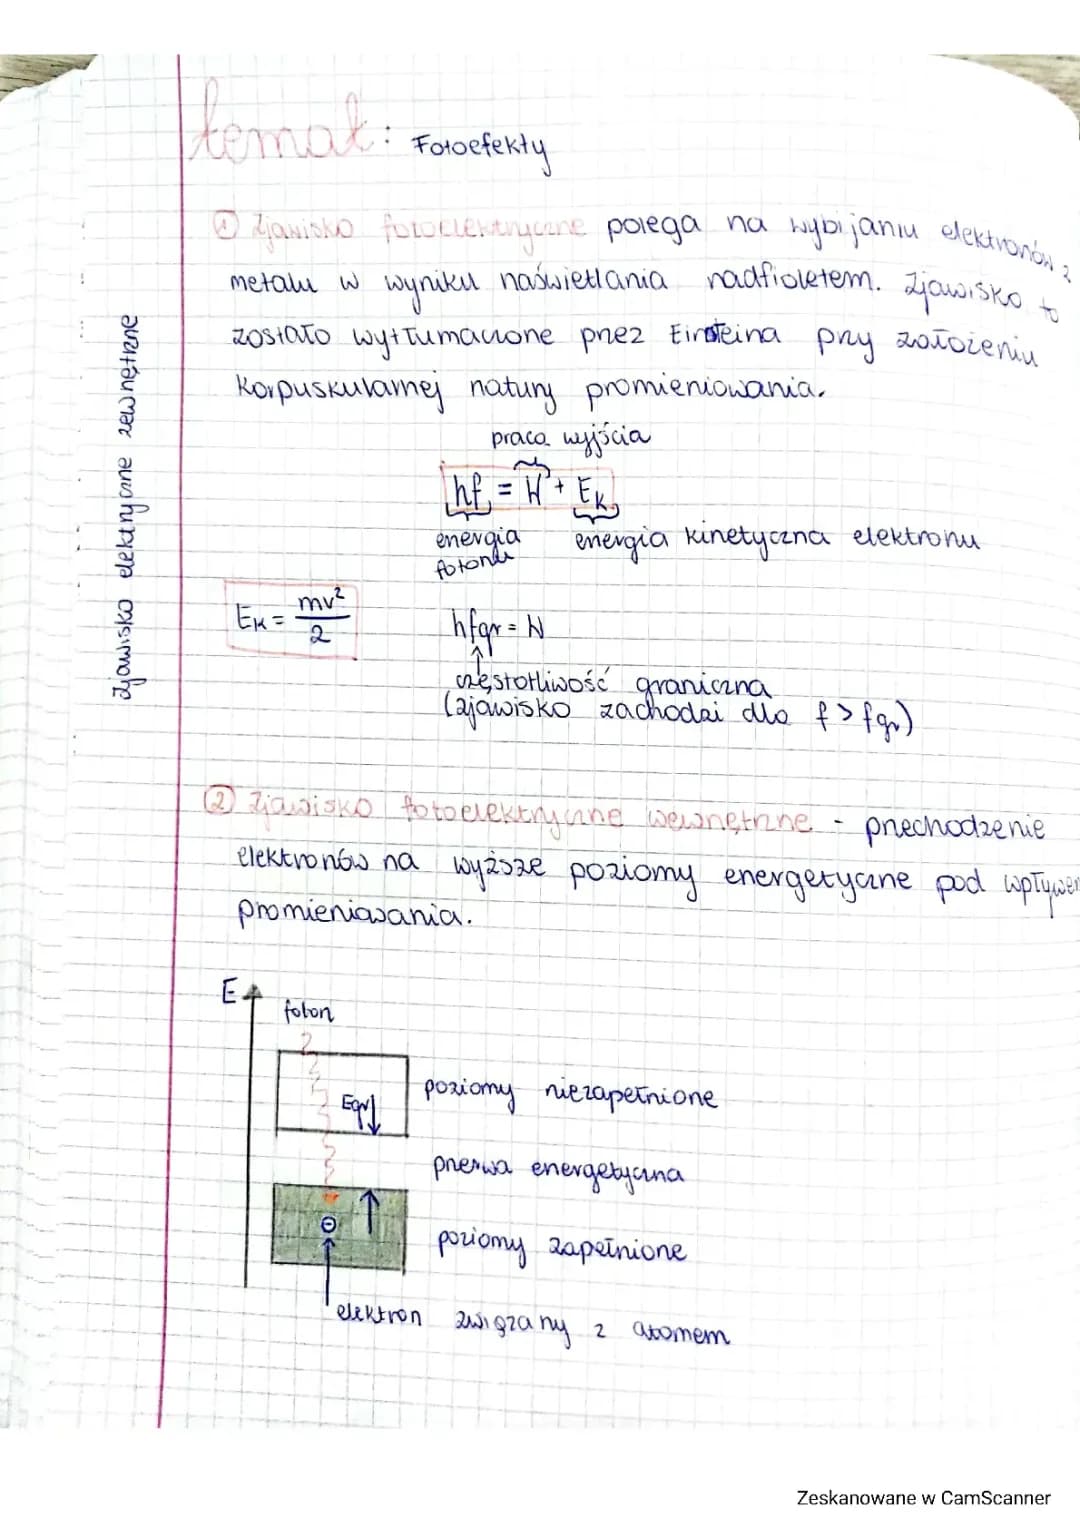 temat: Fotoefekty
① Zjawisko fotoelektryczne polega na wybijaniu elektronów z
metalu w wyniku naświetlania nadfioletem. Zjawisko to
zostało wytłumaczone przez Einsteina przy założeniu
korpuskularnej natury promieniowania.
praca wyjścia
hf = W + Ek
energia energia kinetyczna elektronu
fotonu
Ek = mv²/2
hfgr = W
częstotliwość graniczna
(zjawisko zachodzi dla f > fgr)
zjawisko elektryczne zewnętrzne
② Zjawisko fotoelektryczne wewnętrzne - przechodzenie
elektronów na wyższe poziomy energetyczne pod wpływem
promieniowania.
E
foton
Egr
poziomy niezapełnione
przerwa energetyczna
⊖
poziomy zapełnione
elektron związany z atomem
Zeskanowane w CamScanner